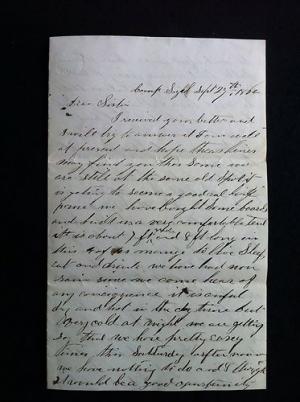 Camp Sept 27th 1862
Dear Sister
I received your letter and
will try to answer it I am well
at present and hope these lines
may find you the same we
are still at the same old spot it
is going to seem a good eal
we have bought some boards
and built us a very comfortable tent
it is about 7 ft and 8 ft long in
this 4 of us manage to live sleep
eat and drink we have had non
rain since we come hear of
any consequence it is awful
dry and hot in the day time but
very cold at night we are getting
so that we have pretty easy
times this Satturday afternoon
we have nothing to do and I thought
it would be a good opertunity